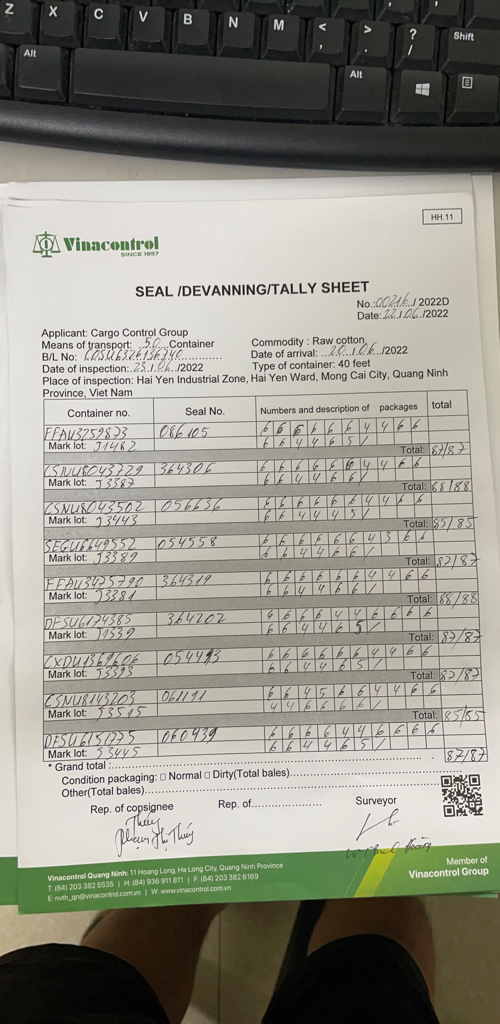 Z X C V B N M < , > . ? / Shift
Alt Alt
HH.11
Vinacontrol
SINCE 1957
SEAL /DEVANNING/TALLY SHEET
No.:00216./ 2022D
Date:22/.06./2022
Applicant: Cargo Control Group
Means of transport: 50 Container Commodity : Raw cotton
B/L No: COSU6326136740 Date of arrival: 20./.06./2022
Date of inspection: 23./.06./2022 Type of container: 40 feet
Place of inspection: Hai Yen Industrial Zone, Hai Yen Ward, Mong Cai City, Quang Ninh
Province, Viet Nam
Container no. Seal No. Numbers and description of packages total
FFAU3259873 086105 6 6 6 6 6 6 4 4 6 6
Mark lot: J1462 6 6 4 4 6 5 /
Total: 87/87
CSNU8043729 364306 6 6 6 6 6 6 4 4 6 6
Mark lot: J3387 6 6 4 4 6 6 /
Total: 88/88
CSNU8043502 056636 6 6 6 6 6 6 4 4 6 6
Mark lot: J3443 6 6 4 4 4 5 /
Total: 85/85
SEGU6649552 054558 6 6 6 6 6 6 4 3 6 6
Mark lot: J3389 6 6 4 4 6 6 /
Total: 87/87
FFAU3475790 364319 6 6 6 6 6 6 4 4 6 6
Mark lot: J3381 6 6 4 4 6 6 /
Total: 88/88
DFSU6174385 364202 6 6 6 6 4 4 6 6 6 6
Mark lot: J1539 6 6 4 4 6 5 /
Total: 87/87
CXDU1369606 054493 6 6 6 6 6 6 4 4 6 6
Mark lot: J3393 6 6 4 4 6 5 /
Total: 87/87
CSNU8143203 061191 6 6 4 5 6 6 4 4 6 6
Mark lot: J3515 4 4 6 6 6 6 /
Total: 85/85
DFSU6151275 060439 6 6 6 6 4 4 6 6 6 6
Mark lot: J3445 6 6 4 4 6 5 /
87/87
* Grand total :
Condition packaging: □ Normal □ Dirty(Total bales)
Other(Total bales)
Rep. of consignee Rep. of Surveyor
Thúy
Phạm Thị Thúy
Vinacontrol Quang Ninh: 11 Hoang Long, Ha Long City, Quang Ninh Province
T: (84) 203 382 5535 | H: (84) 936 911 811 | F: (84) 203 382 6169
E: nvth_qn@vinacontrol.com.vn | W: www.vinacontrol.com.vn
Member of
Vinacontrol Group